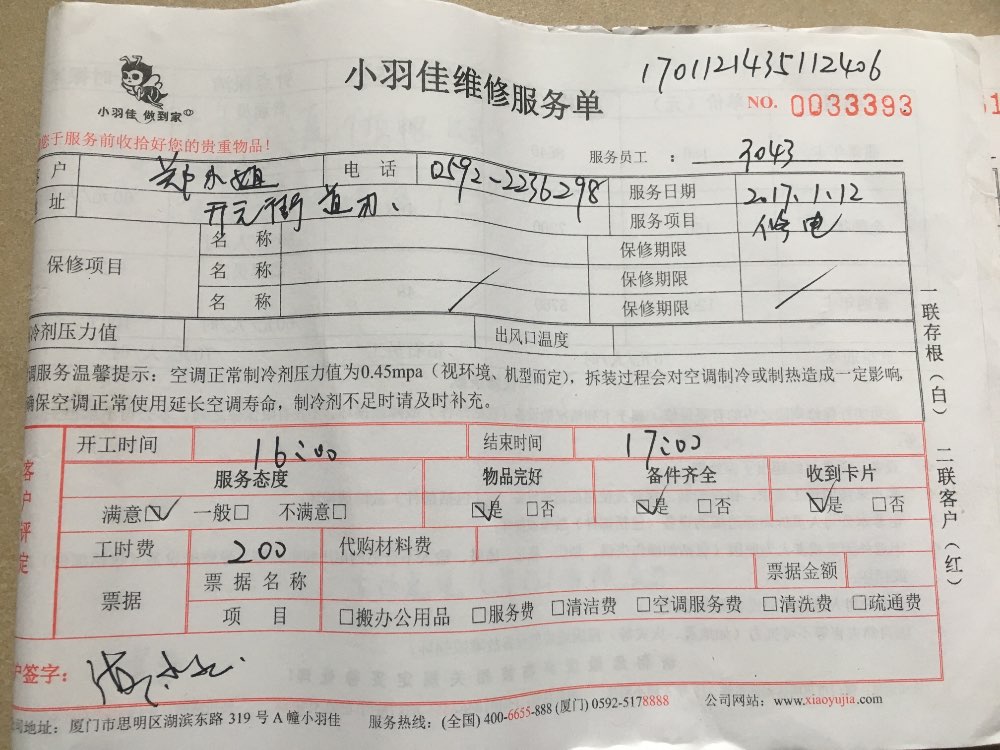 小羽佳维修服务单
1701121435112406
小羽佳 做到家
NO. 0033393
于服务前收拾好您的贵重物品！
服务员工 ： 3043
户 小姐 电 话 0592-2236298 服务日期 2017.1.12
址 开元街道 服务项目 修电
保修项目
名 称 保修期限
名 称 保修期限
名 称 保修期限
冷剂压力值 出风口温度
调服务温馨提示：空调正常制冷剂压力值为0.45mpa（视环境、机型而定），拆装过程会对空调制冷或制热造成一定影响，
确保空调正常使用延长空调寿命，制冷剂不足时请及时补充。
一联存根（白）
二联客户（红）
客户评定
开工时间 16:00 结束时间 17:00
服务态度 物品完好 备件齐全 收到卡片
满意☑ 一般□ 不满意□ ☑是 □否 ☑是 □否 ☑是 □否
工时费 200 代购材料费
票据 票据名称 票据金额
项 目 □搬办公用品 □服务费 □清洁费 □空调服务费 □清洗费 □疏通费
户签字：
地址：厦门市思明区湖滨东路 319 号 A 幢小羽佳 服务热线：(全国) 400-6655-888 (厦门) 0592-5178888 公司网站：www.xiaoyujia.com